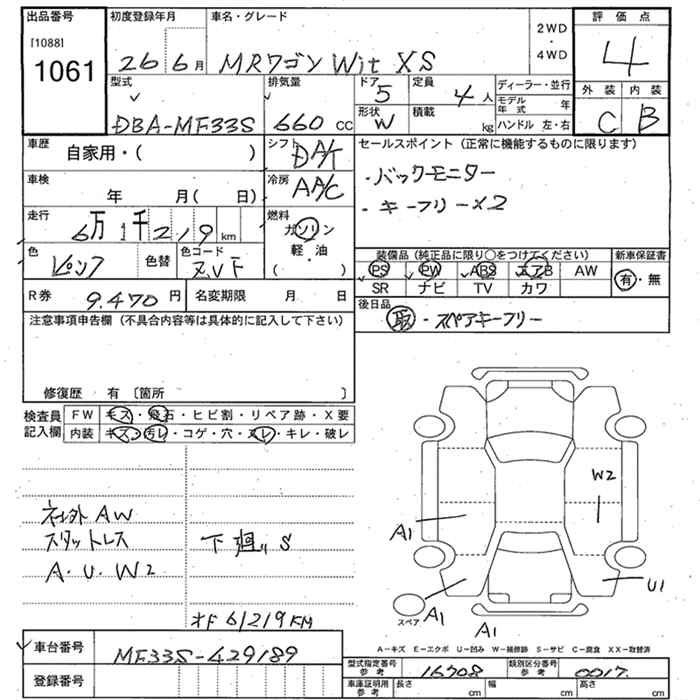 出品番号 初度登録年月 車名・グレード 2WD・4WD 評価点
[1088]
1061 26 6月 MRワゴン Wit XS 4
型式 排気量 ドア 5 定員 4人 ディーラー・並行 外装 内装
DBA-MF33S 660 CC 形状 W 積載 kg モデル年式 年 C B
ハンドル 左・右
車歴 自家用・( ) シフト DA/T セールスポイント (正常に機能するものに限ります)
車検 年 月( 日) 冷房 AA/C ・バックモニター
走行 6万1千219km 燃料 ガソリン ・キーフリー×2
軽・油
( )
色 ピンク 色替 色コード ZVF 装備品 (純正品に限り○をつけてください) 新車保証書
PS PW ABS エアB AW 有・無
R券 9,470円 名変期限 月 日 SR ナビ TV カワ
注意事項申告欄 (不具合内容等は具体的に記入して下さい) 後日品
取・スペアキーフリー
修復歴 有 〔箇所 〕
検査員記入欄 FW キズ・飛石・ヒビ割・リペア跡・X要
内装 キズ・汚レ・コゲ・穴・スレ・キレ・破レ
W2
ネ工外 AW
スタットレス 下廻り S A1
A・U・W2 U1
スペア A1 A1
オド 61219KM
A-キズ E-エクボ U-凹み W-補修跡 S-サビ C-腐食 XX-取替済
車台番号 MF33S-429189 型式指定番号 参考 16708 類別区分番号 参考 0017
登録番号 車庫証明用 参考 長さ cm 幅 cm 高さ cm